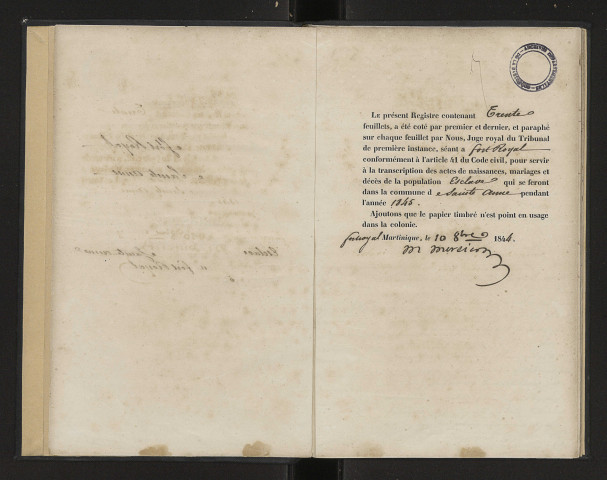 Le présent Registre contenant Trente
feuillets, a été coté par premier et dernier, et paraphé
sur chaque feuillet par Nous, Juge royal du Tribunal
de première instance, séant à fort Royal
conformément à l'article 41 du Code civil, pour servir
à la transcription des actes de naissances, mariages et
décès de la population Esclave qui se feront
dans la commune de Sainte Anne pendant
l'année 1845.
Ajoutons que le papier timbré n'est point en usage
dans la colonie.
fortroyal Martinique, le 10 8bre 1844.